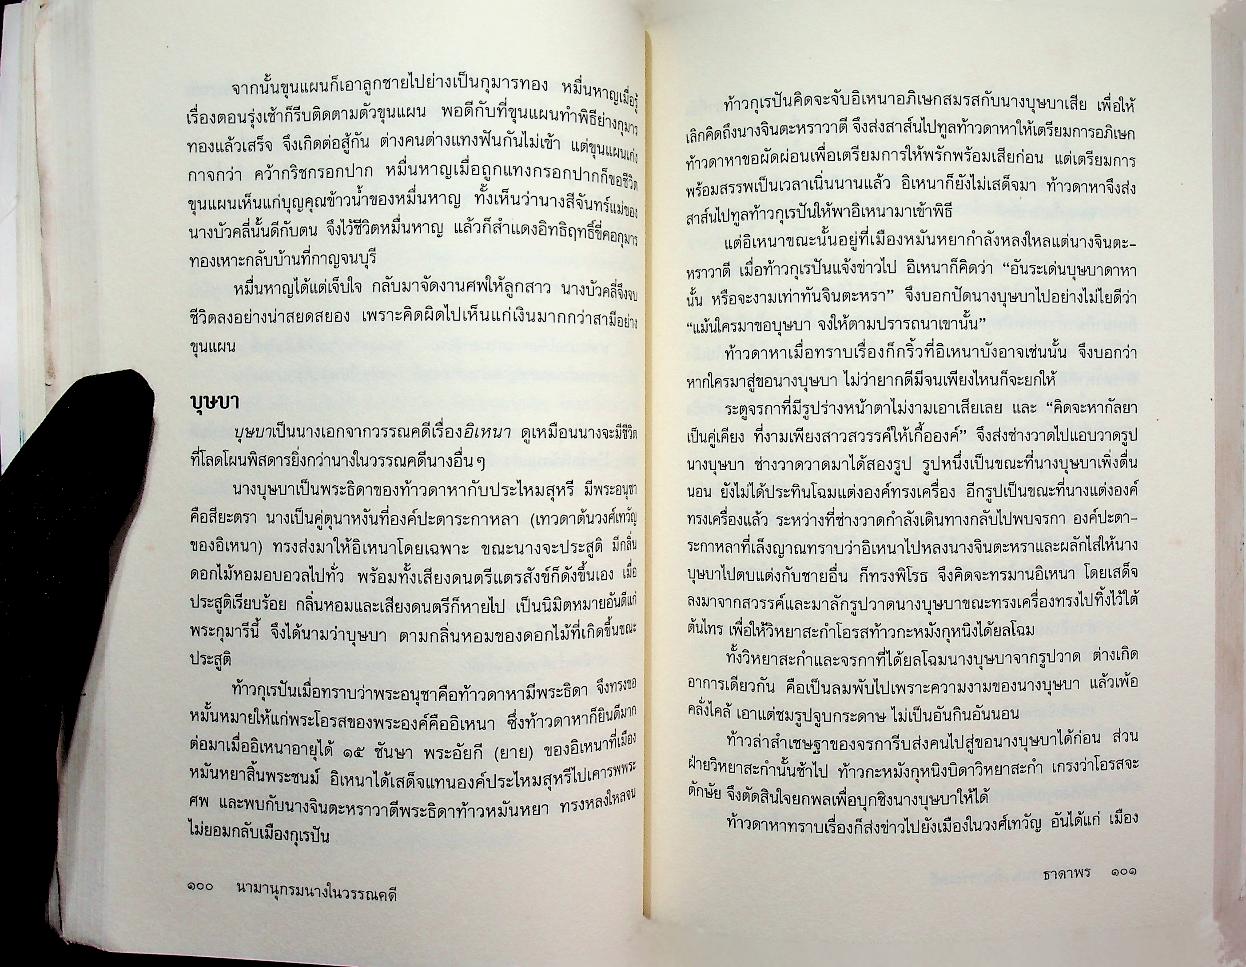 จากนั้นขุนแผนก็เอาลูกชายไปย่างเป็นกุมารทอง หมื่นหาญเมื่อรู้
เรื่องตอนรุ่งเช้าก็รีบติดตามตัวขุนแผน พอดีกับที่ขุนแผนทำพิธีย่างกุมาร
ทองแล้วเสร็จ จึงเกิดต่อสู้กัน ต่างคนต่างแทงฟันกันไม่เข้า แต่ขุนแผนเก่ง
กาจกว่า คว้ากริชกรอกปาก หมื่นหาญเมื่อถูกแทงกรอกปากก็ขอชีวิต
ขุนแผนเห็นแก่บุญคุณข้าวน้ำของหมื่นหาญ ทั้งเห็นว่านางสีจันทร์แม่ของ
นางบัวคลี่นั้นดีกับตน จึงไว้ชีวิตหมื่นหาญ แล้วก็สำแดงอิทธิฤทธิ์ขี่คอกุมาร
ทองเหาะกลับบ้านที่กาญจนบุรี
หมื่นหาญได้แต่เจ็บใจ กลับมาจัดงานศพให้ลูกสาว นางบัวคลี่จึงจบ
ชีวิตลงอย่างน่าสยดสยอง เพราะคิดผิดไปเห็นแก่เงินมากกว่าสามีอย่าง
ขุนแผน
บุษบา
บุษบาเป็นนางเอกจากวรรณคดีเรื่องอิเหนา ดูเหมือนนางจะมีชีวิต
ที่โลดโผนพิสดารยิ่งกว่านางในวรรณคดีนางอื่นๆ
นางบุษบาเป็นพระธิดาของท้าวดาหากับประไหมสุหรี มีพระอนุชา
คือสียะตรา นางเป็นคู่ตุนาหงันที่องค์ปะตาระกาหลา (เทวดาต้นวงศ์เทวัญ
ของอิเหนา) ทรงส่งมาให้อิเหนาโดยเฉพาะ ขณะนางจะประสูติ มีกลิ่น
ดอกไม้หอมอบอวลไปทั่ว พร้อมทั้งเสียงดนตรีแตรสังข์ก็ดังขึ้นเอง เมื่อ
ประสูติเรียบร้อย กลิ่นหอมและเสียงดนตรีก็หายไป เป็นนิมิตหมายอันดีแก่
พระกุมารีนี้ จึงได้นามว่าบุษบา ตามกลิ่นหอมของดอกไม้ที่เกิดขึ้นขณะ
ประสูติ
ท้าวกุเรปันเมื่อทราบว่าพระอนุชาคือท้าวดาหามีพระธิดา จึงทรงขอ
หมั้นหมายให้แก่พระโอรสของพระองค์คืออิเหนา ซึ่งท้าวดาหาก็ยินดีมาก
ต่อมาเมื่ออิเหนาอายุได้ ๑๕ ชันษา พระอัยกี (ยาย) ของอิเหนาที่เมือง
หมันหยาสิ้นพระชนม์ อิเหนาได้เสด็จแทนองค์ประไหมสุหรีไปเคารพพระ
ศพ และพบกับนางจินตะหราวาตีพระธิดาท้าวหมันหยา ทรงหลงใหลจน
ไม่ยอมกลับเมืองกุเรปัน
๑๐๐ นามานุกรมนางในวรรณคดี
ท้าวกุเรปันคิดจะจับอิเหนาอภิเษกสมรสกับนางบุษบาเสีย เพื่อให้
เลิกคิดถึงนางจินตะหราวาตี จึงส่งสาส์นไปทูลท้าวดาหาให้เตรียมการอภิเษก
ท้าวดาหาขอผัดผ่อนเพื่อเตรียมการให้พรักพร้อมเสียก่อน แต่เตรียมการ
พร้อมสรรพเป็นเวลาเนิ่นนานแล้ว อิเหนาก็ยังไม่เสด็จมา ท้าวดาหาจึงส่ง
สาส์นไปทูลท้าวกุเรปันให้พาอิเหนามาเข้าพิธี
แต่อิเหนาขณะนั้นอยู่ที่เมืองหมันหยากำลังหลงใหลแต่นางจินตะ-
หราวาตี เมื่อท้าวกุเรปันแจ้งข่าวไป อิเหนาก็คิดว่า “อันระเด่นบุษบาดาหา
นั้น หรือจะงามเท่าทันจินตะหรา” จึงบอกปัดนางบุษบาไปอย่างไม่ไยดีว่า
“แม้นใครมาขอบุษบา จงให้ตามปรารถนาเขานั้น”
ท้าวดาหาเมื่อทราบเรื่องก็กริ้วที่อิเหนาบังอาจเช่นนั้น จึงบอกว่า
หากใครมาสู่ขอนางบุษบา ไม่ว่ายากดีมีจนเพียงไหนก็จะยกให้
ระตูจรกาที่มีรูปร่างหน้าตาไม่งามเอาเสียเลย และ “คิดจะหากัลยา
เป็นคู่เคียง ที่งามเพียงสาวสวรรค์ให้เกื้อองค์” จึงส่งช่างวาดไปแอบวาดรูป
นางบุษบา ช่างวาดวาดมาได้สองรูป รูปหนึ่งเป็นขณะที่นางบุษบาเพิ่งตื่น
นอน ยังไม่ได้ประทินโฉมแต่งองค์ทรงเครื่อง อีกรูปเป็นขณะที่นางแต่งองค์
ทรงเครื่องแล้ว ระหว่างที่ช่างวาดกำลังเดินทางกลับไปพบจรกา องค์ปะตา-
ระกาหลาที่เล็งญาณทราบว่าอิเหนาไปหลงนางจินตะหราและผลักไสให้นาง
บุษบาไปตบแต่งกับชายอื่น ก็ทรงพิโรธ จึงคิดจะทรมานอิเหนา โดยเสด็จ
ลงมาจากสวรรค์และมาลักรูปวาดนางบุษบาขณะทรงเครื่องทรงไปทิ้งไว้ใต้
ต้นไทร เพื่อให้วิหยาสะกำโอรสท้าวกะหมังกุหนิงได้ยลโฉม
ทั้งวิหยาสะกำและจรกาที่ได้ยลโฉมนางบุษบาจากรูปวาด ต่างเกิด
อาการเดียวกัน คือเป็นลมพับไปเพราะความงามของนางบุษบา แล้วเพ้อ
คลั่งไคล้ เอาแต่ชมรูปจูบกระดาษ ไม่เป็นอันกินอันนอน
ท้าวล่าสำเชษฐาของจรการีบส่งคนไปสู่ขอนางบุษบาได้ก่อน ส่วน
ฝ่ายวิหยาสะกำนั้นช้าไป ท้าวกะหมังกุหนิงบิดาวิหยาสะกำ เกรงว่าโอรสจะ
ตักษัย จึงตัดสินใจยกพลเพื่อบุกชิงนางบุษบาให้ได้
ท้าวดาหาทราบเรื่องก็ส่งข่าวไปยังเมืองในวงศ์เทวัญ อันได้แก่ เมือง
ธาดาพร ๑๐๑